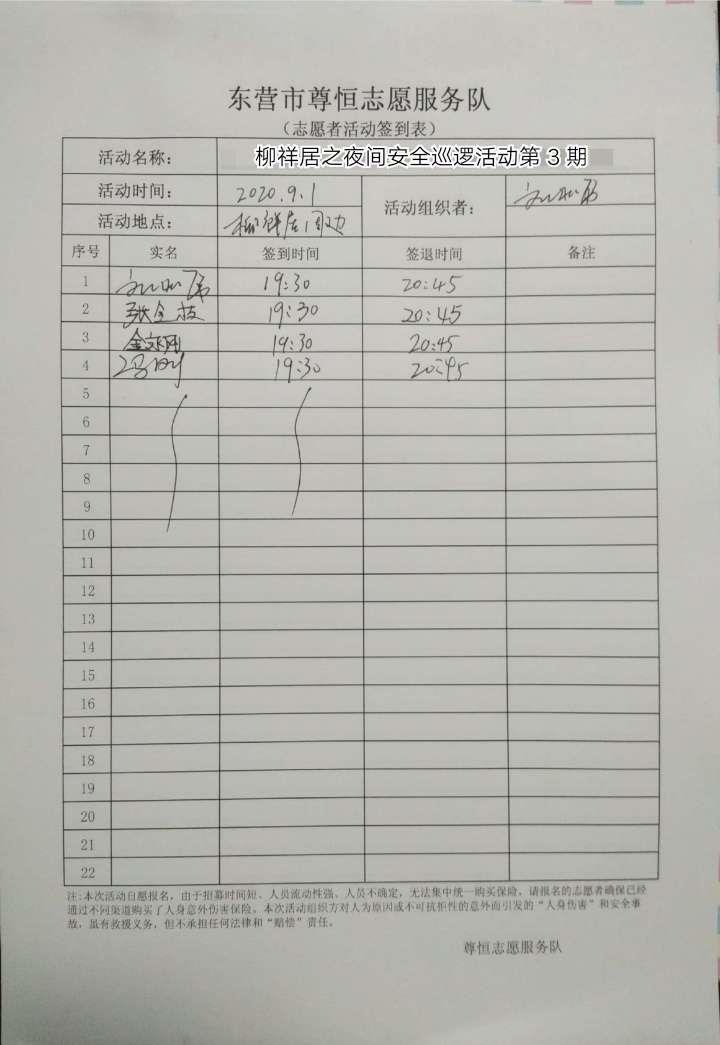 东营市尊恒志愿服务队
（志愿者活动签到表）
活动名称： 柳祥居之夜间安全巡逻活动第 3 期
活动时间： 2020.9.1 活动组织者：
活动地点： 柳祥居周边
序号 实名 签到时间 签退时间 备注
1 19:30 20:45
2 张全枝 19:30 20:45
3 19:30 20:45
4 冯刚 19:30 20:45
5
6
7
8
9
10
11
12
13
14
15
16
17
18
19
20
21
22
注:本次活动自愿报名，由于招募时间短、人员流动性强、人员不确定，无法集中统一购买保险，请报名的志愿者确保已经
通过不同渠道购买了人身意外伤害保险。本次活动组织方对人为原因或不可抗拒性的意外而引发的“人身伤害”和安全事
故，虽有救援义务，但不承担任何法律和“赔偿”责任。
尊恒志愿服务队